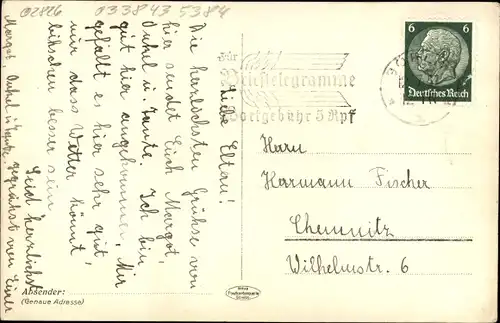 02826
033843 5384
Liebe Eltern!
Die herzlichsten Grüsse von
hier sendet Euch Margot,
Onkel u. Tante. Ich bin
gut hier angekommen. Mir
gefällt es hier sehr gut,
nur dass Wetter könnt
bißschen besser sein.
Seid herzlichst
gegrüsst von Eurer
Margot, Onkel u. Tante.
Absender:
(Genaue Adresse)
Für
Brieftelegramme
Wortgebühr 5 Rpf
6 6
Deutsches Reich
Herrn
Hermann Fischer
Chemnitz
Wilhelmstr. 6